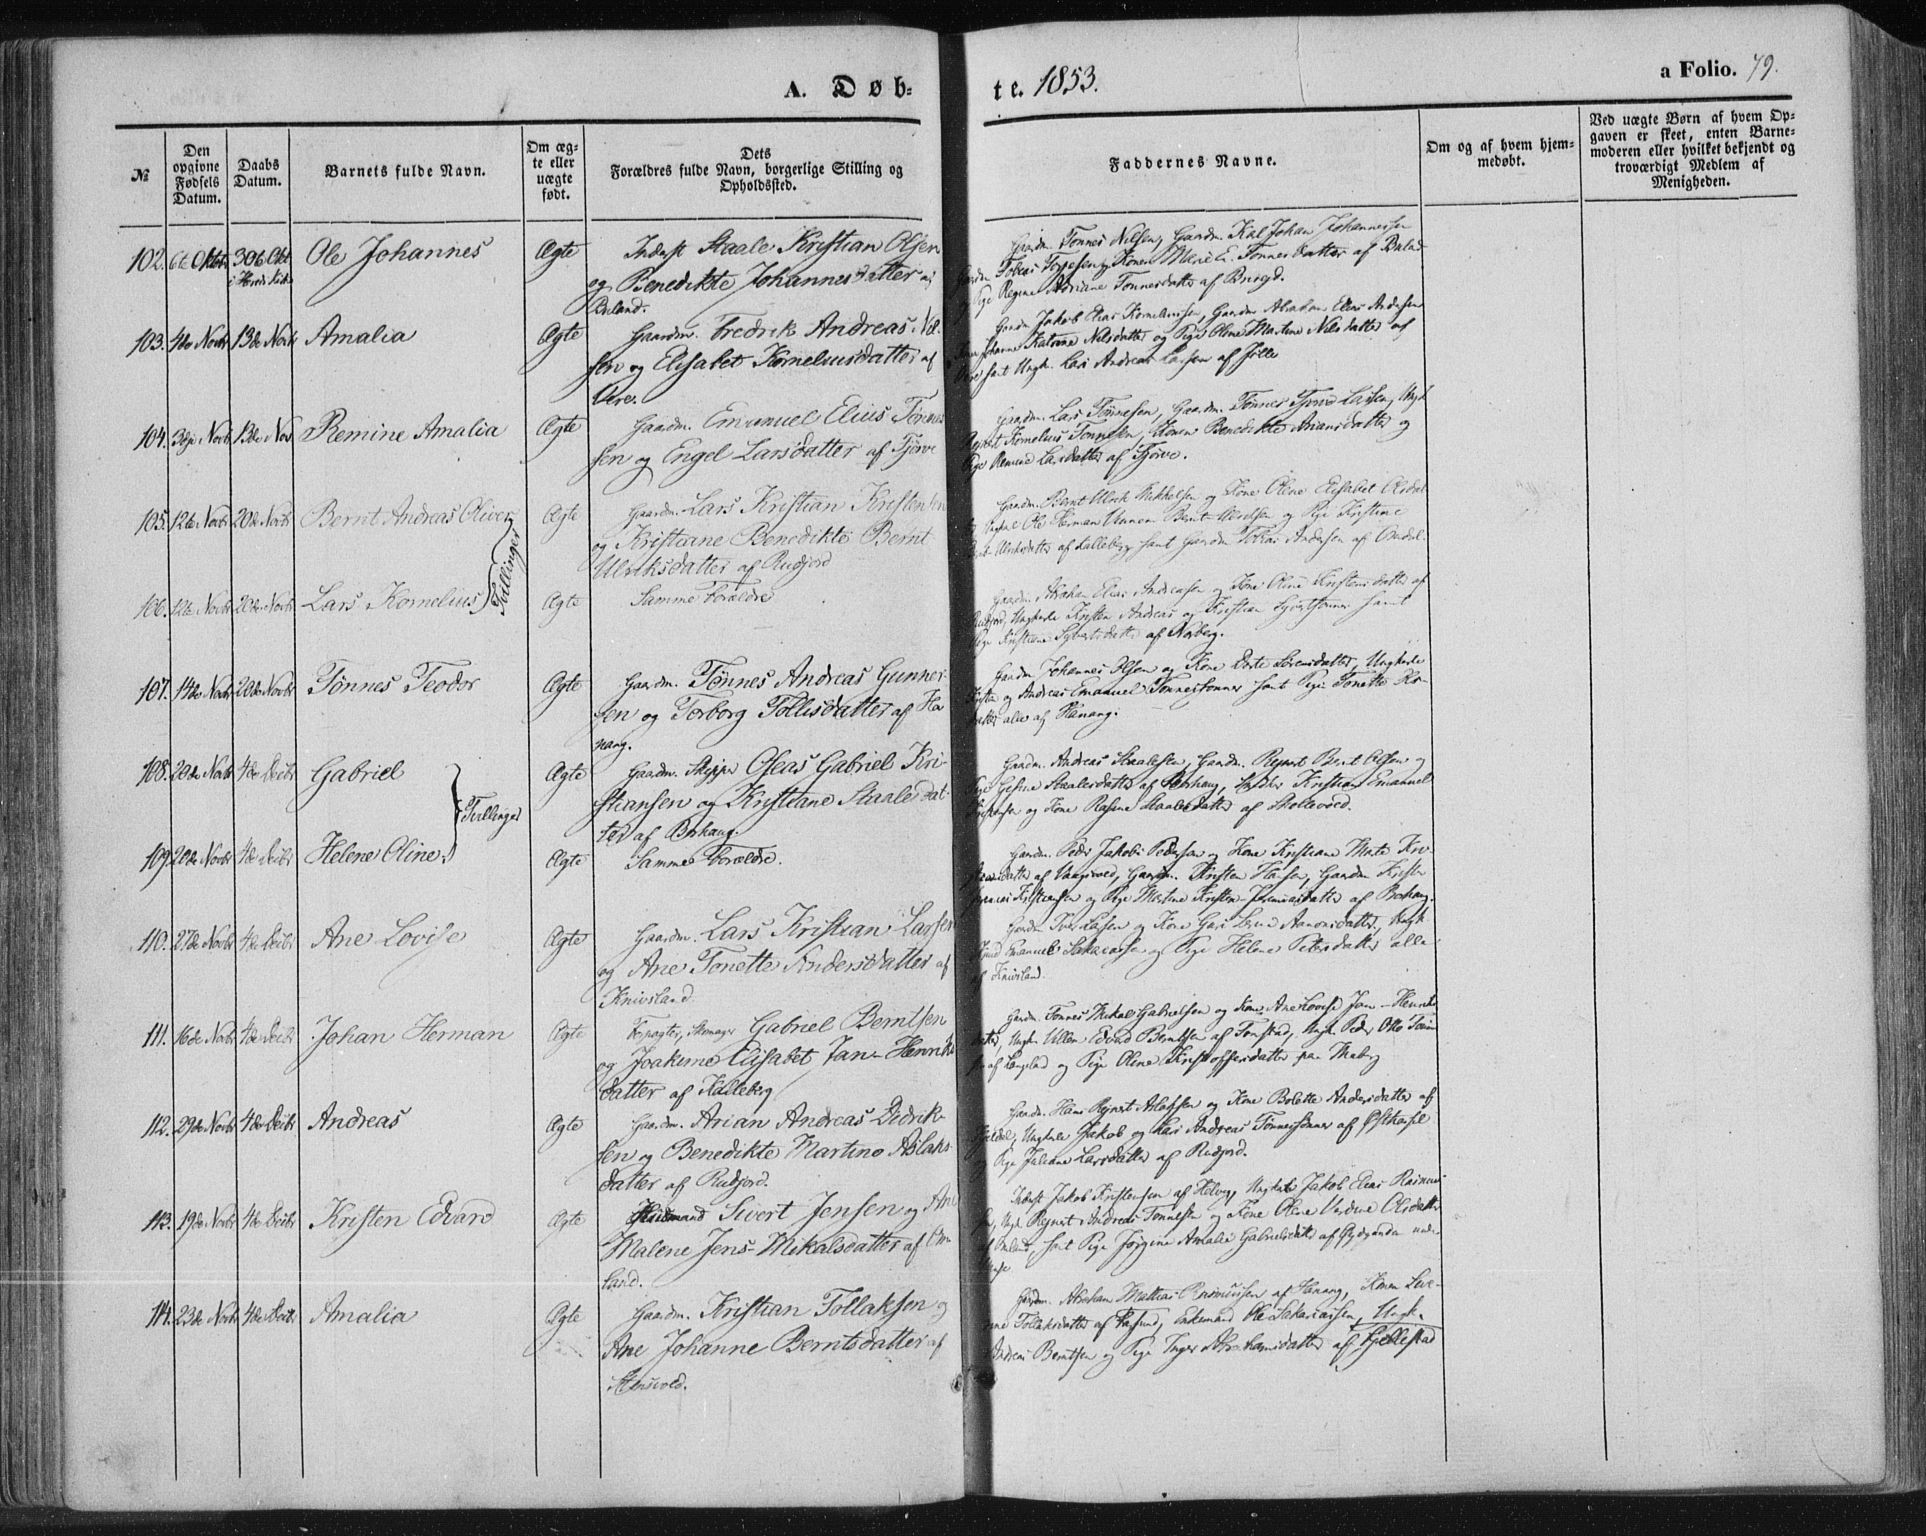 A. Døb-
te. 1853.
a Folio. 79.
№
Den opgivne Fødsels Datum.
Daabs Datum.
Barnets fulde Navn.
Om ægte eller uægte født.
Dets Forældres fulde Navn, borgerlige Stilling og Opholdssted.
Faddernes Navne.
Om og af hvem hjemmedøbt.
Ved uægte Børn af hvem Opgaven er skeet, enten Barnemoderen eller hvilket bekjendt og troværdigt Medlem af Menigheden.
102. 6te Oktbr 30te Okt Ole Johannes Ægte Inderst Staale Kristian Olsen
og Benedikte Johannesdatter af
Buland.
Gaardm. Tønnes Nilsen, Gaardm. Karl Johan Johannessen
Gaardm Tobias Torgesen, Konen Marie E. Tønnesdatter af Buland
Pige Regine Adriane Tønnesdatter af
103. 4de Novbr 13de Novb Amalia Ægte Gaardm. Fredrik Andreas Nil-
sen og Elisabet Korneliusdatter af
Ore.
Gaardm Jakob Elias Korneliussen, Gaardm Abraham Elias Andersen
Johanne Katrine Nilsdatter og Pige Oline Martine Nilsdatter af
Ore samt Ungk. Lars Andreas Larsen af Jølle
104. 3dje Novbr 13de Nov Remine Amalia Ægte Gaardm. Emanuel Elius Tønnes
sen og Engel Larsdatter af Tjørve
Gaardm. Lars Tønnesen, Gaardm. Tønnes Tjørve Larsen, Ungk
Reinert Kornelius Tønnesen, Konen Benedikte Ariansdatter og
Pige Remine Larsdatter af Tjørve.
105. 12te Novbr 20de Novbr Bernt Andreas Oliver Ægte Gaardm. Lars Kristian Kristensen
og Kristiane Benedikte Bernt
Ulriksdatter af Rudjord
Tvillinger
Gaardm. Bernt Ulrik Mikkelsen og Kone Oline Elisabet
Ungk Ole Herman Bernt-Ulriksen og Pige Kristine
Bernt-Ulriksdatter af Kalleberg samt Gaardm Tobias Andersen af Omdal.
106. 12te Novbr 20de Novbr Lars Kornelius Ægte Samme Forældre
Gaardm. Abraham Elias Andreasen og Kone Oline Kristensdatter af
Rudjord, Ungkarle Kristen Andreas og Kristian samt
Pige Kristiane Sybertsdatter af Norberg.
107. 14de Novbr 20de Novbr Tønnes Teodor Ægte Gaardm. Tønnes Andreas Gunner-
sen og Torborg Tollisdatter af Ha
nang.
Gaardm Johannes Olsen og Kone Dorte Sørensdatter, Ungkarle
Kristen og Andreas Emanuel Tønnessønner samt Pige Tonette
datter alle af Hanang.
108. 20de Novbr 4de Decbr Gabriel Ægte Gaardm. Skipper Oseas Gabriel Kri-
stiansen og Kristiane Staalesdat-
ter af Borhaug.
Tvillinger
Gaardm. Andreas Staalesen, Gaardm. Reinert Bernt Olsen og
Pige Gesine Staalesdatter af Borhaug, Kristian Emanuel
Kristensen og Kone Rasine Staalesdatter af
109. 20de Novbr 4de Decbr Helene Oline Ægte Samme Forældre.
Gaardm. Peder Jakobs Pedersen og Kone Kristiane Marte Kri-
stiansdatter af Gaardm. Kristen Hansen, Gaardm Kristen
Kristiansen og Pige Martine Kristen-Jeremiasdatter af Borhaug.
110. 27de Novbr 4de Decbr Ane Lovise Ægte Gaardm. Lars Kristian Larsen
og Ane Tonette Andersdatter af
Knivsland
Gaardm Iver Larsen og Kone Gusi Aanonsdatter, Ungk
Emanuel Sakariasen og Pige Helene Petersdatter alle
af Knivsland.
111. 16de Novbr 4de Decbr Johan Herman Ægte Forpagter, Skomager Gabriel Berntsen
og Joakime Elisabet Jan-Henriks
datter af Kalleberg
Gaardm. Tønnes Mikal Gabrielsen og Kone Ane Lovise Jan-Henriks
datter, Ungk. Ullen Edvard Berntsen af Tonstad, Ungk. Peder Otto
af Langeland og Pige Oline Kristoffersdatter paa Maberg
112. 29de Novbr 4de Decbr Andreas Ægte Gaardm. Arian Andreas Didrik-
sen og Benedikte Martine Aslaks
datter af Rudjord.
Gaardm. Hans Reinert Aslaksen og Kone Bolette Andersdatter af
Ungkarle Jakob og Lars Andreas Tønnessønner af Østhassel
og Pige Juliane Larsdatter af Rudjord.
113. 19de Novbr 4de Decbr Kristen Edvard Ægte Huusmand Sivert Jensen og Ane
Malene Jens-Mikalsdatter af Om
land.
Inderst Jakob Kristensen af Helvig, Ungkarl Jakob Elias Rasmus-
sen, Ungk Reinert Andreas Tønnesen og Kone Oline Olsdatter
af Omland, samt Pige Jørgine Amalie Gabrielsdatter af
114. 23de Novbr 4de Decbr Amalia Ægte Gaardm. Kristian Tollaksen og
Ane Johanne Berntsdatter af
Stensvold.
Gaardm. Abraham Mathias Rasmussen af Hanang, Konen
Tollaksdatter af Enkemand Ole Sakariassen, Ungk.
Andreas Berntsen og Pige Inger Abrahamsdatter af Hjellestad